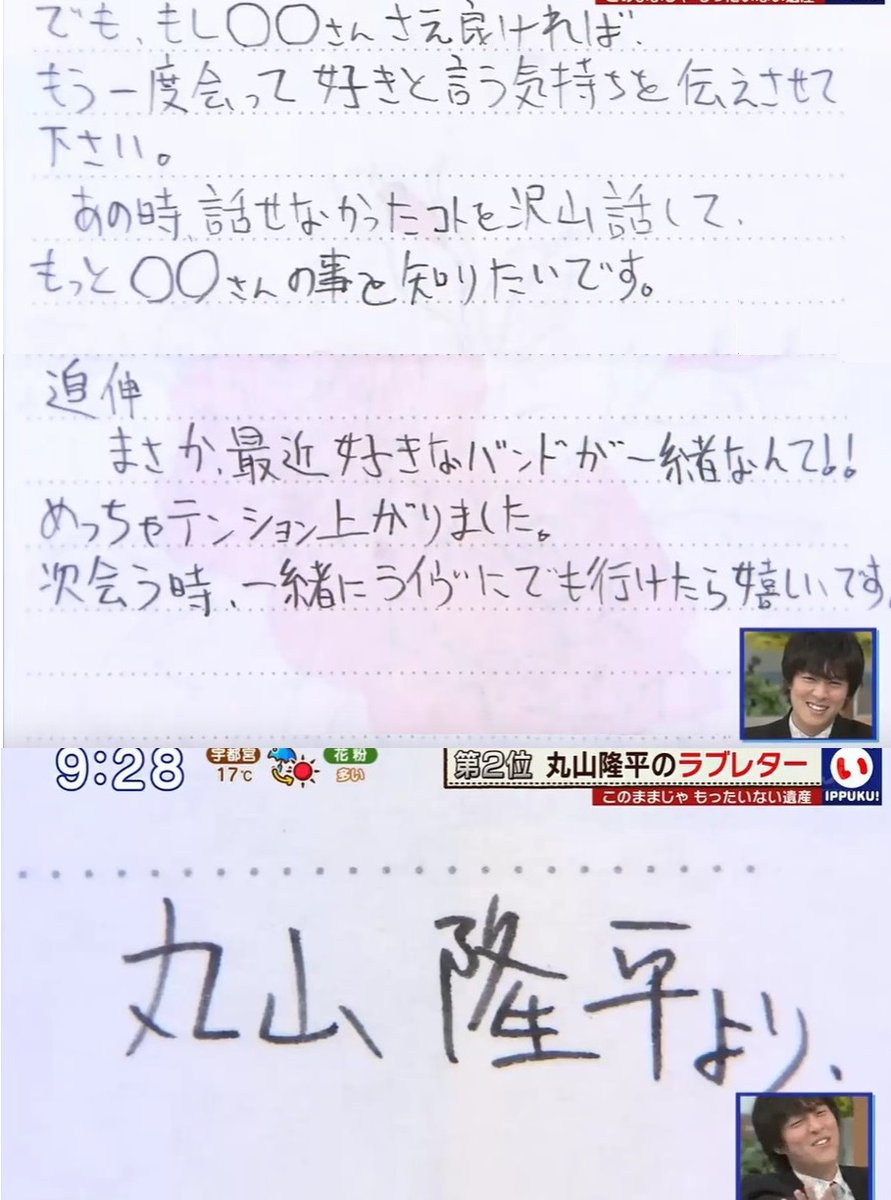 このままじゃ もったいない遺産
でも、もし○○さんさえ良ければ、
もう一度会って好きと言う気持ちを伝えさせて
下さい。
あの時、話せなかったコトを沢山話して、
もっと○○さんの事を知りたいです。
追伸
まさか、最近好きなバンドが一緒なんて!!
めっちゃテンション上がりました。
次会う時、一緒にライヴにでも行けたら嬉しいです。
9:28
宇都宮
17℃
花粉
多い
第2位 丸山隆平のラブレター
い
このままじゃ もったいない遺産
IPPUKU!
丸山隆平より、